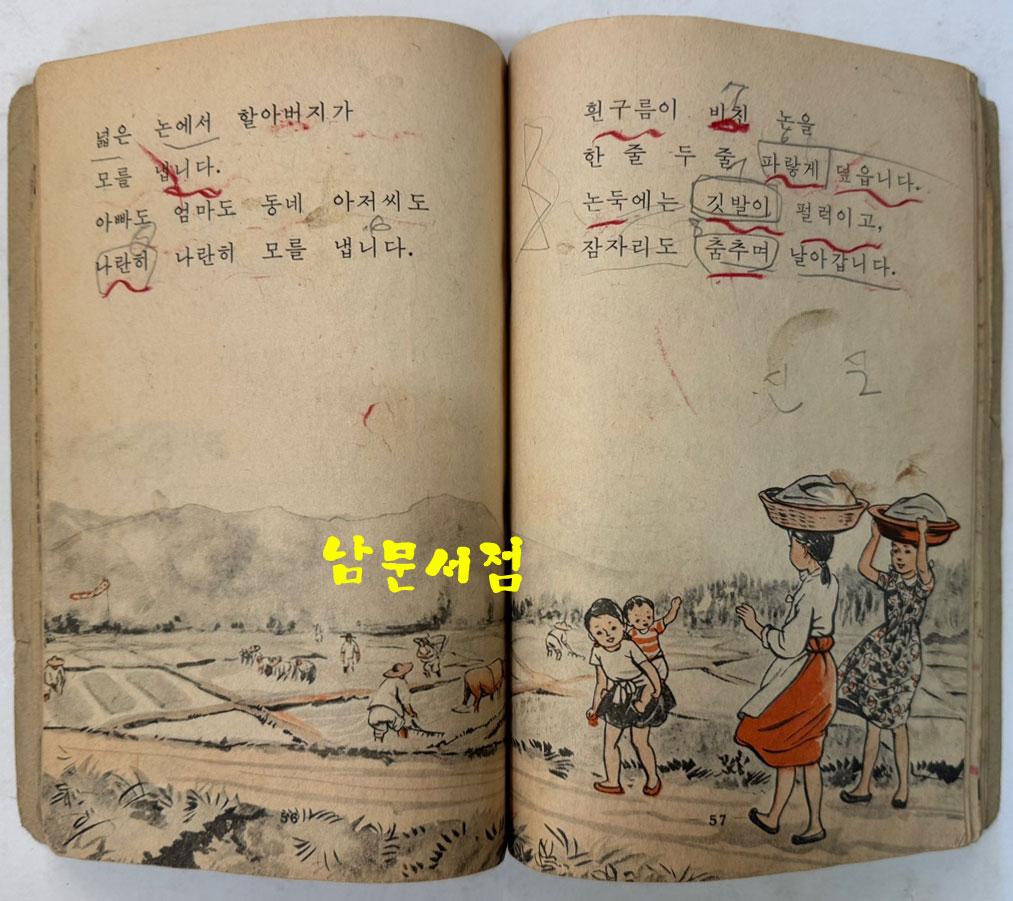 넓은 논에서 할아버지가
모를 냅니다.
아빠도 엄마도 동네 아저씨도
나란히 나란히 모를 냅니다.
56
흰구름이 비친 논을
한 줄 두 줄 파랗게 덮읍니다.
논둑에는 깃발이 펄럭이고,
잠자리도 춤추며 날아갑니다.
57
남문서점